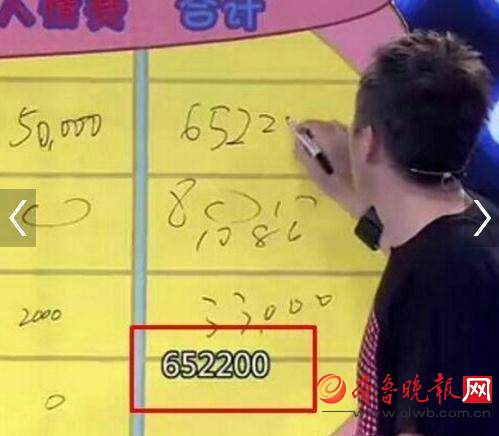 人情费 合计
50,000 6522
2000 33,000
652200
0
齐鲁晚报网
www.qlwb.com.cn